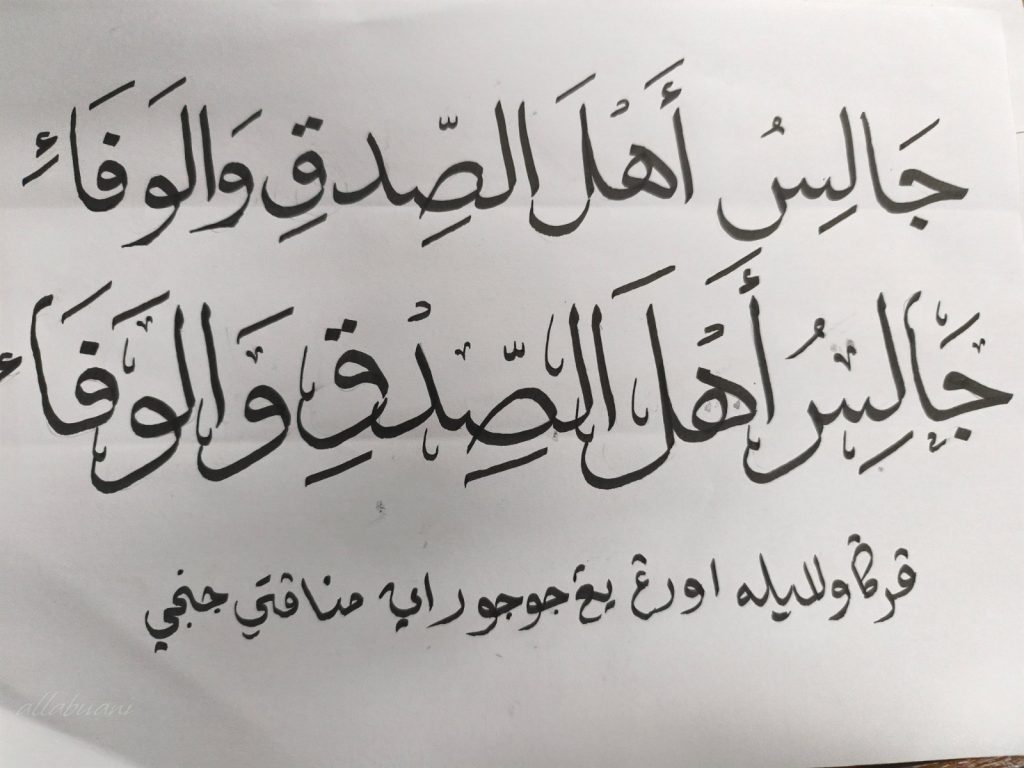 جَالِسُ أَهْلَ الصِّدقِ وَالوَفَاءِ
جَالِسُ أَهْلَ الصِّدْقِ وَالوَفَاء
ڤرڬاوليله اورڠ يڠ جوجور مناڤتي جنجي
allabuani